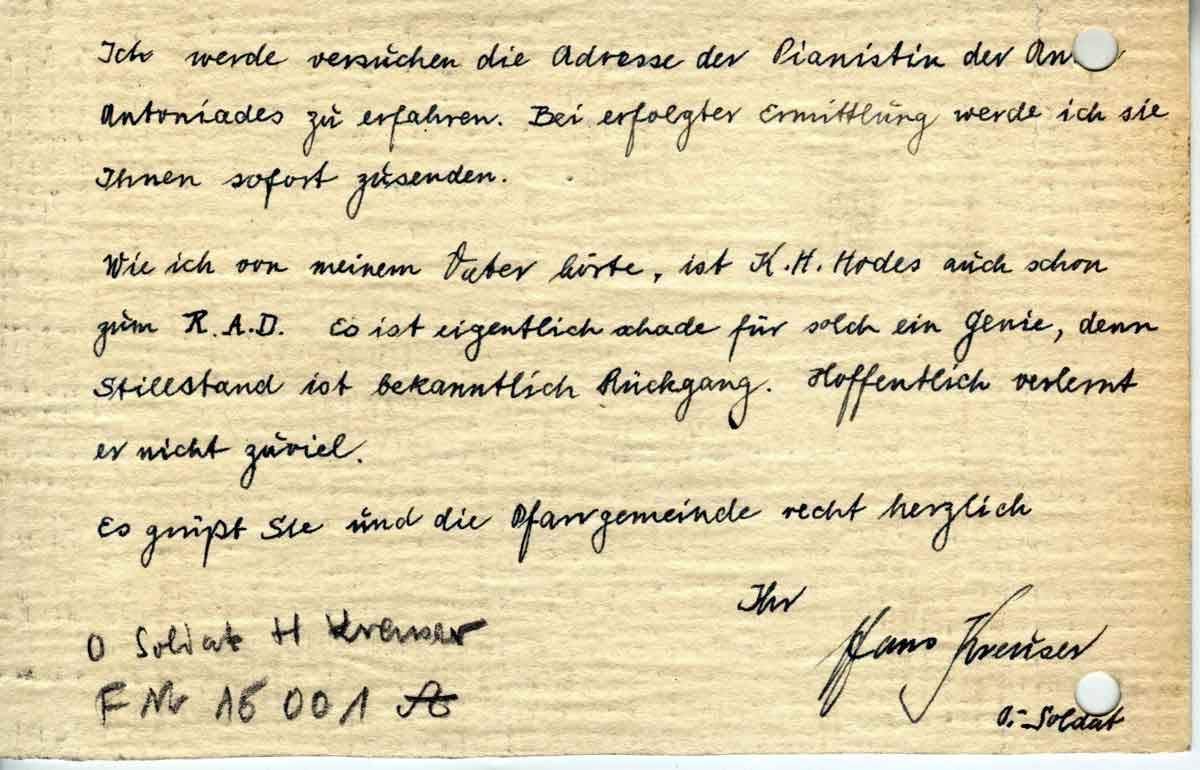 Ich werde versuchen die Adresse der Pianistin der
Antoniades zu erfahren. Bei erfolgter Ermittlung werde ich sie
Ihnen sofort zusenden.
Wie ich von meinem Vater hörte, ist K.H. Hodes auch schon
zum R.A.D. Es ist eigentlich schade für solch ein Genie, denn
Stillstand ist bekanntlich Rückgang. Hoffentlich verlernt
er nicht zuviel.
Es grüßt Sie und die Pfarrgemeinde recht herzlich
Ihr
Hans Kreuser
O.-Soldat
O Soldat H Kreuser
F Nr 16 001 A